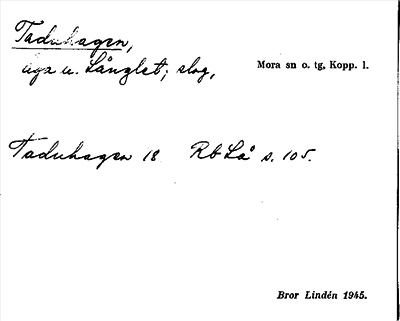 Taduhagen,
äga u. Långlet; slog, Mora sn o. tg, Kopp. l.
Taduhagen 18 Rb Lå s. 105.
Bror Lindén 1945.